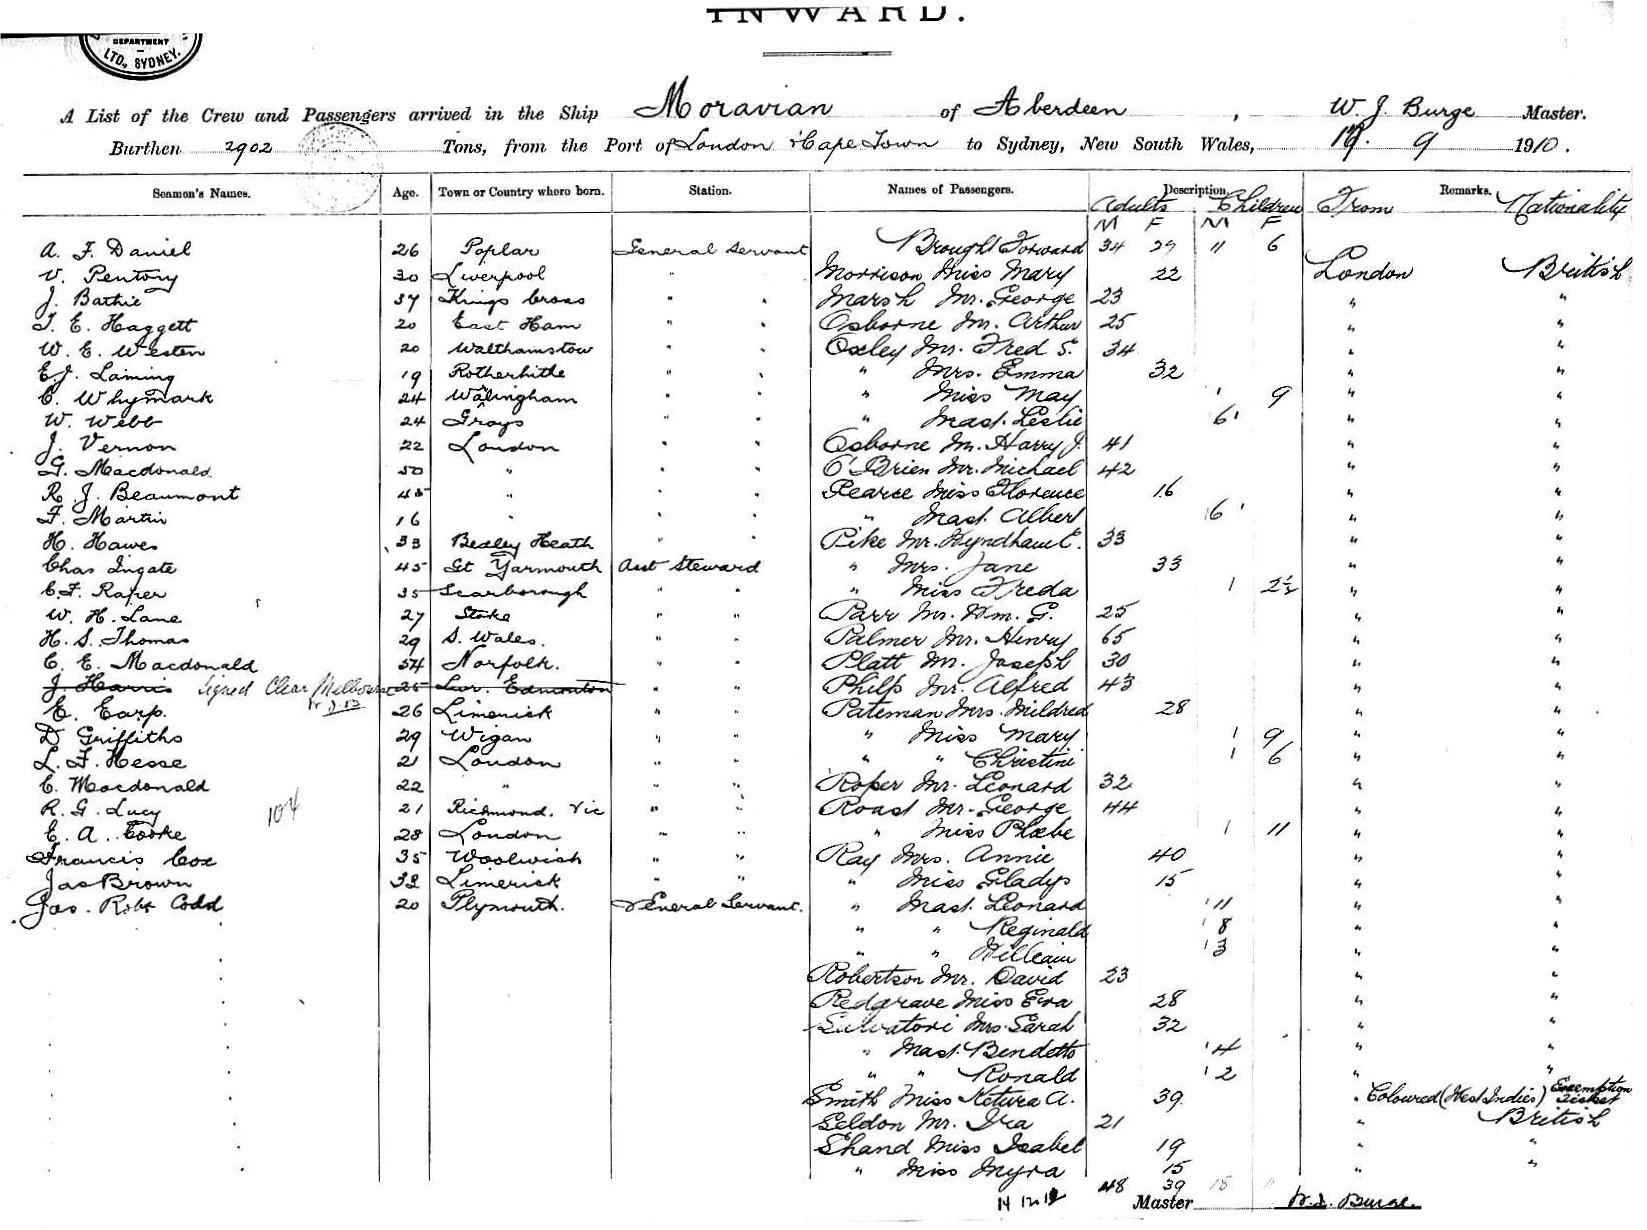 INWARD.
DEPARTMENT
LTD., SYDNEY.
A List of the Crew and Passengers arrived in the Ship Moravian of Aberdeen, W. J. Burge Master.
Burthen 2902 Tons, from the Port of London & Cape Town to Sydney, New South Wales, 9 1910.
Seamen's Names. Age. Town or Country where born. Station. Names of Passengers. Description. Remarks.
Adults Children From Nationality
M F M F
A. F. Daniel 26 Poplar General Servant Brought Forward 34 29 11 6
V. Pentony 30 Liverpool " Morrison Miss Mary 22 London British
J. Bathie 37 Kings Cross " " Marsh Mr. George 23 " "
T. E. Haggett 20 East Ham " " Osborne Mr. Arthur 25 " "
W. E. Westen 20 Walthamstow " " Oxley Mr. Fred S. 34 " "
E. J. Laming 19 Rotherhithe " " " Mrs. Emma 32 " "
C. Whymark 24 Walingham " " " Miss May 1 9 " "
W. Webb 24 Grays " " " Mast. Leslie 6 1 " "
J. Vernon 22 London " " Osborne Mr. Harry J. 41 " "
G. Macdonald 50 " " " O'Brien Mr. Michael 42 " "
R. J. Beaumont 45 " " " Pearce Miss Florence 16 " "
F. Martin 16 " " " " Mast. Albert 6 1 " "
H. Hawes 33 Bexley Heath " " Pike Mr. Wyndham E. 33 " "
Chas Ingate 45 Gt Yarmouth Asst Steward " Mrs. Jane 33 " "
C. F. Raper 35 Scarborough " " " Miss Freda 1 2½ " "
W. H. Lane 27 Stoke " " Parr Mr. Wm. G. 25 " "
H. S. Thomas 29 S. Wales. " " Palmer Mr. Henry 65 " "
C. E. Macdonald 54 Norfolk. " " Platt Mr. Joseph 30 " "
J. Harris Signed Clear Melbourne 25 Lwr. Edmonton " " Philp Mr. Alfred 43 " "
E. Earp. 26 Limerick " " Pateman Mrs. Mildred 28 " "
D Griffiths 29 Wigan " " " Miss Mary 1 9 " "
L. F. Hesse 21 London " " " " Christine 1 6 " "
C. Macdonald 22 " " " Roper Mr. Leonard 32 " "
R. G. Lucy 104 21 Richmond. Vic " " Roast Mr. George 44 " "
E. A. Cooke 28 London " " " Miss Phœbe 1 11 " "
Francis Cox 35 Woolwich " " Ray Mrs. Annie 40 " "
Jas Brown 32 Limerick " " " Miss Gladys 15 " "
Jas. Robt Codd 20 Plymouth. General Servant. " Mast. Leonard 1 11 " "
" " Reginald 1 8 " "
" " William 1 3 " "
Robertson Mr. David 23 " "
Redgrave Miss Eva 28 " "
Salvatori Mrs. Sarah 32 " "
" Mast. Bendetto 1 4 " "
" " Ronald 1 2 " "
Smith Miss Ketura A. 39 " Coloured (West Indies) Exemption Ticket
Seldon Mr. Ira 21 " British
Shand Miss Isabel 19 " "
" Miss Myra 15 " "
48 39 15
Master W. J. Burge.